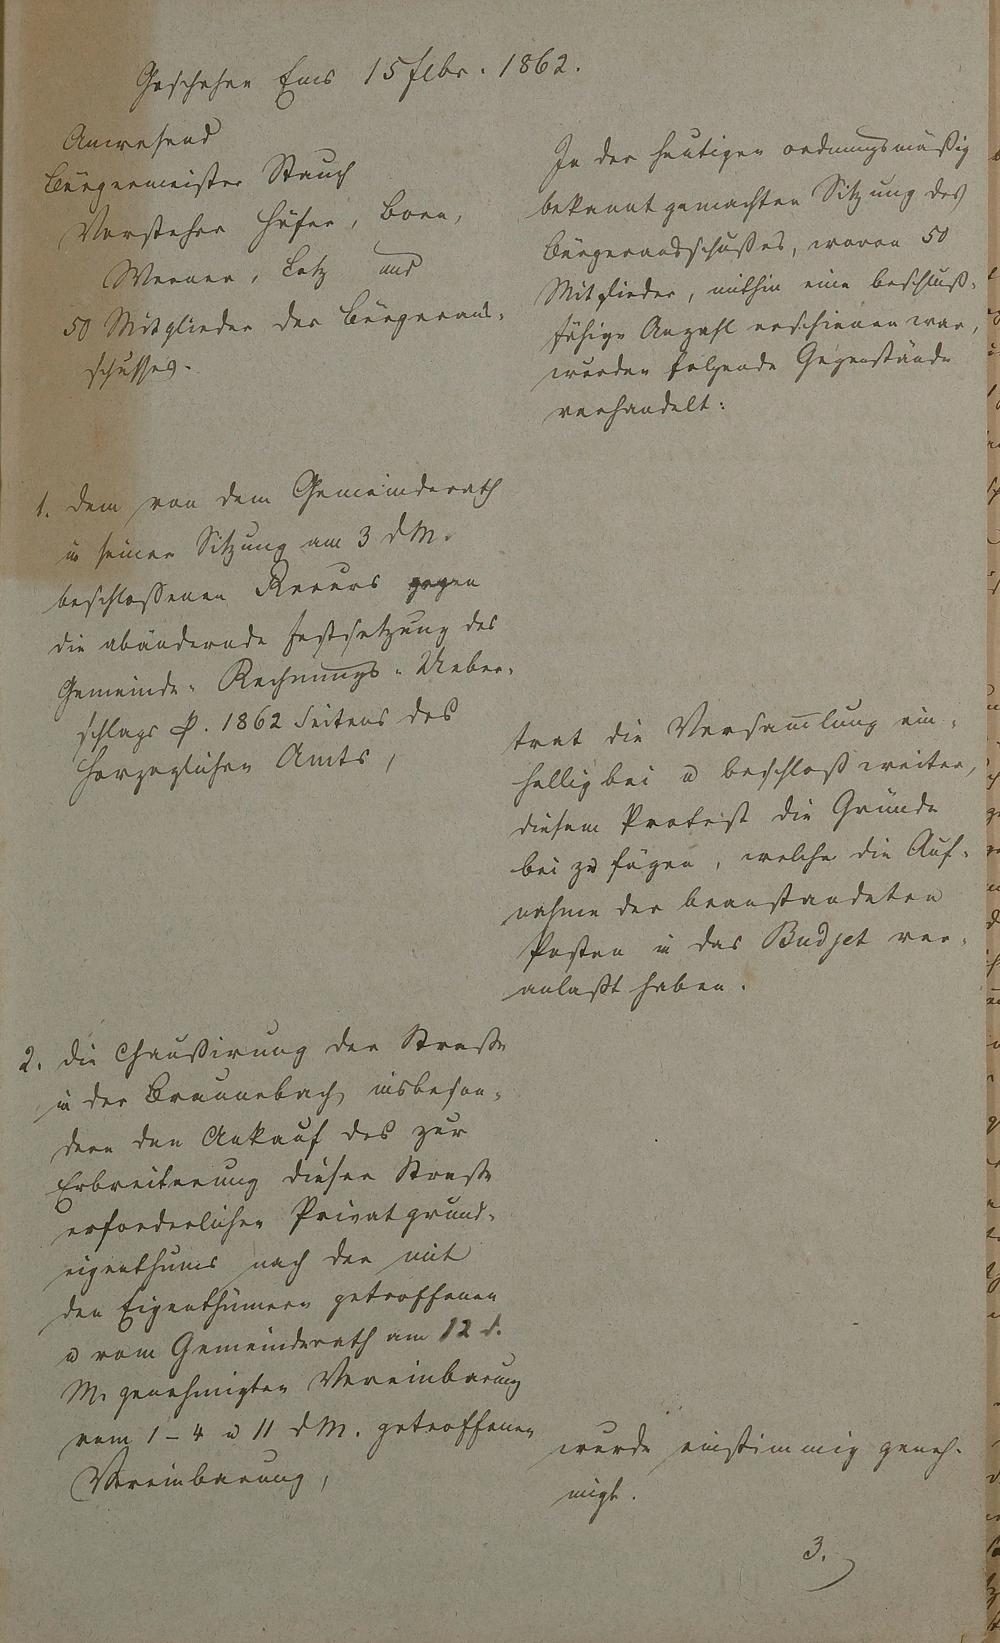 Geschehen Ems 15 Febr. 1862.
Anwesend
Bürgermeister Stauch
Vorsteher Höfer, Born,
Werner, Lotz und
50 Mitglieder des Bürgeraus-
schusses.
In der heutigen ordnungsmäßig
bekannt gemachten Sitzung des
Bürgerausschußes, woran 50
Mitglieder, mithin eine beschluß-
fähige Anzahl erschienen war,
wurden folgende Gegenstände
verhandelt:
1. dem von dem Gemeinderath
in seiner Sitzung am 3 d M.
beschlossenen Recurs gegen
die abändernde Festsetzung des
Gemeinde-Rechnungs-Ueber-
schlags p. 1862 Seitens des
Herzoglichen Amts,
trat die Versammlung ein-
hellig bei u beschloß weiter,
diesem Protest die Gründe
bei zu fügen, welche die Auf-
nahme der beanstandeten
Posten in das Budjet ver-
anlaßt haben.
2. die Chaußirung der Straße
in der Braunebach, insbeson-
dere den Ankauf des zur
Erbreiterung dieser Straße
erforderlichen Privatgrund-
eigenthums nach der mit
den Eigenthümern getroffenen
u vom Gemeinderath am 12 d.
M. genehmigten Vereinbarung
vom 1 – 4 u 11 d M. getroffenen
Vereinbarung,
wurde einstimmig geneh-
migt.
3.